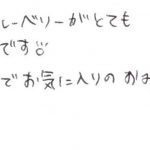 ーベリーがとても
です
でお気に入りのおは